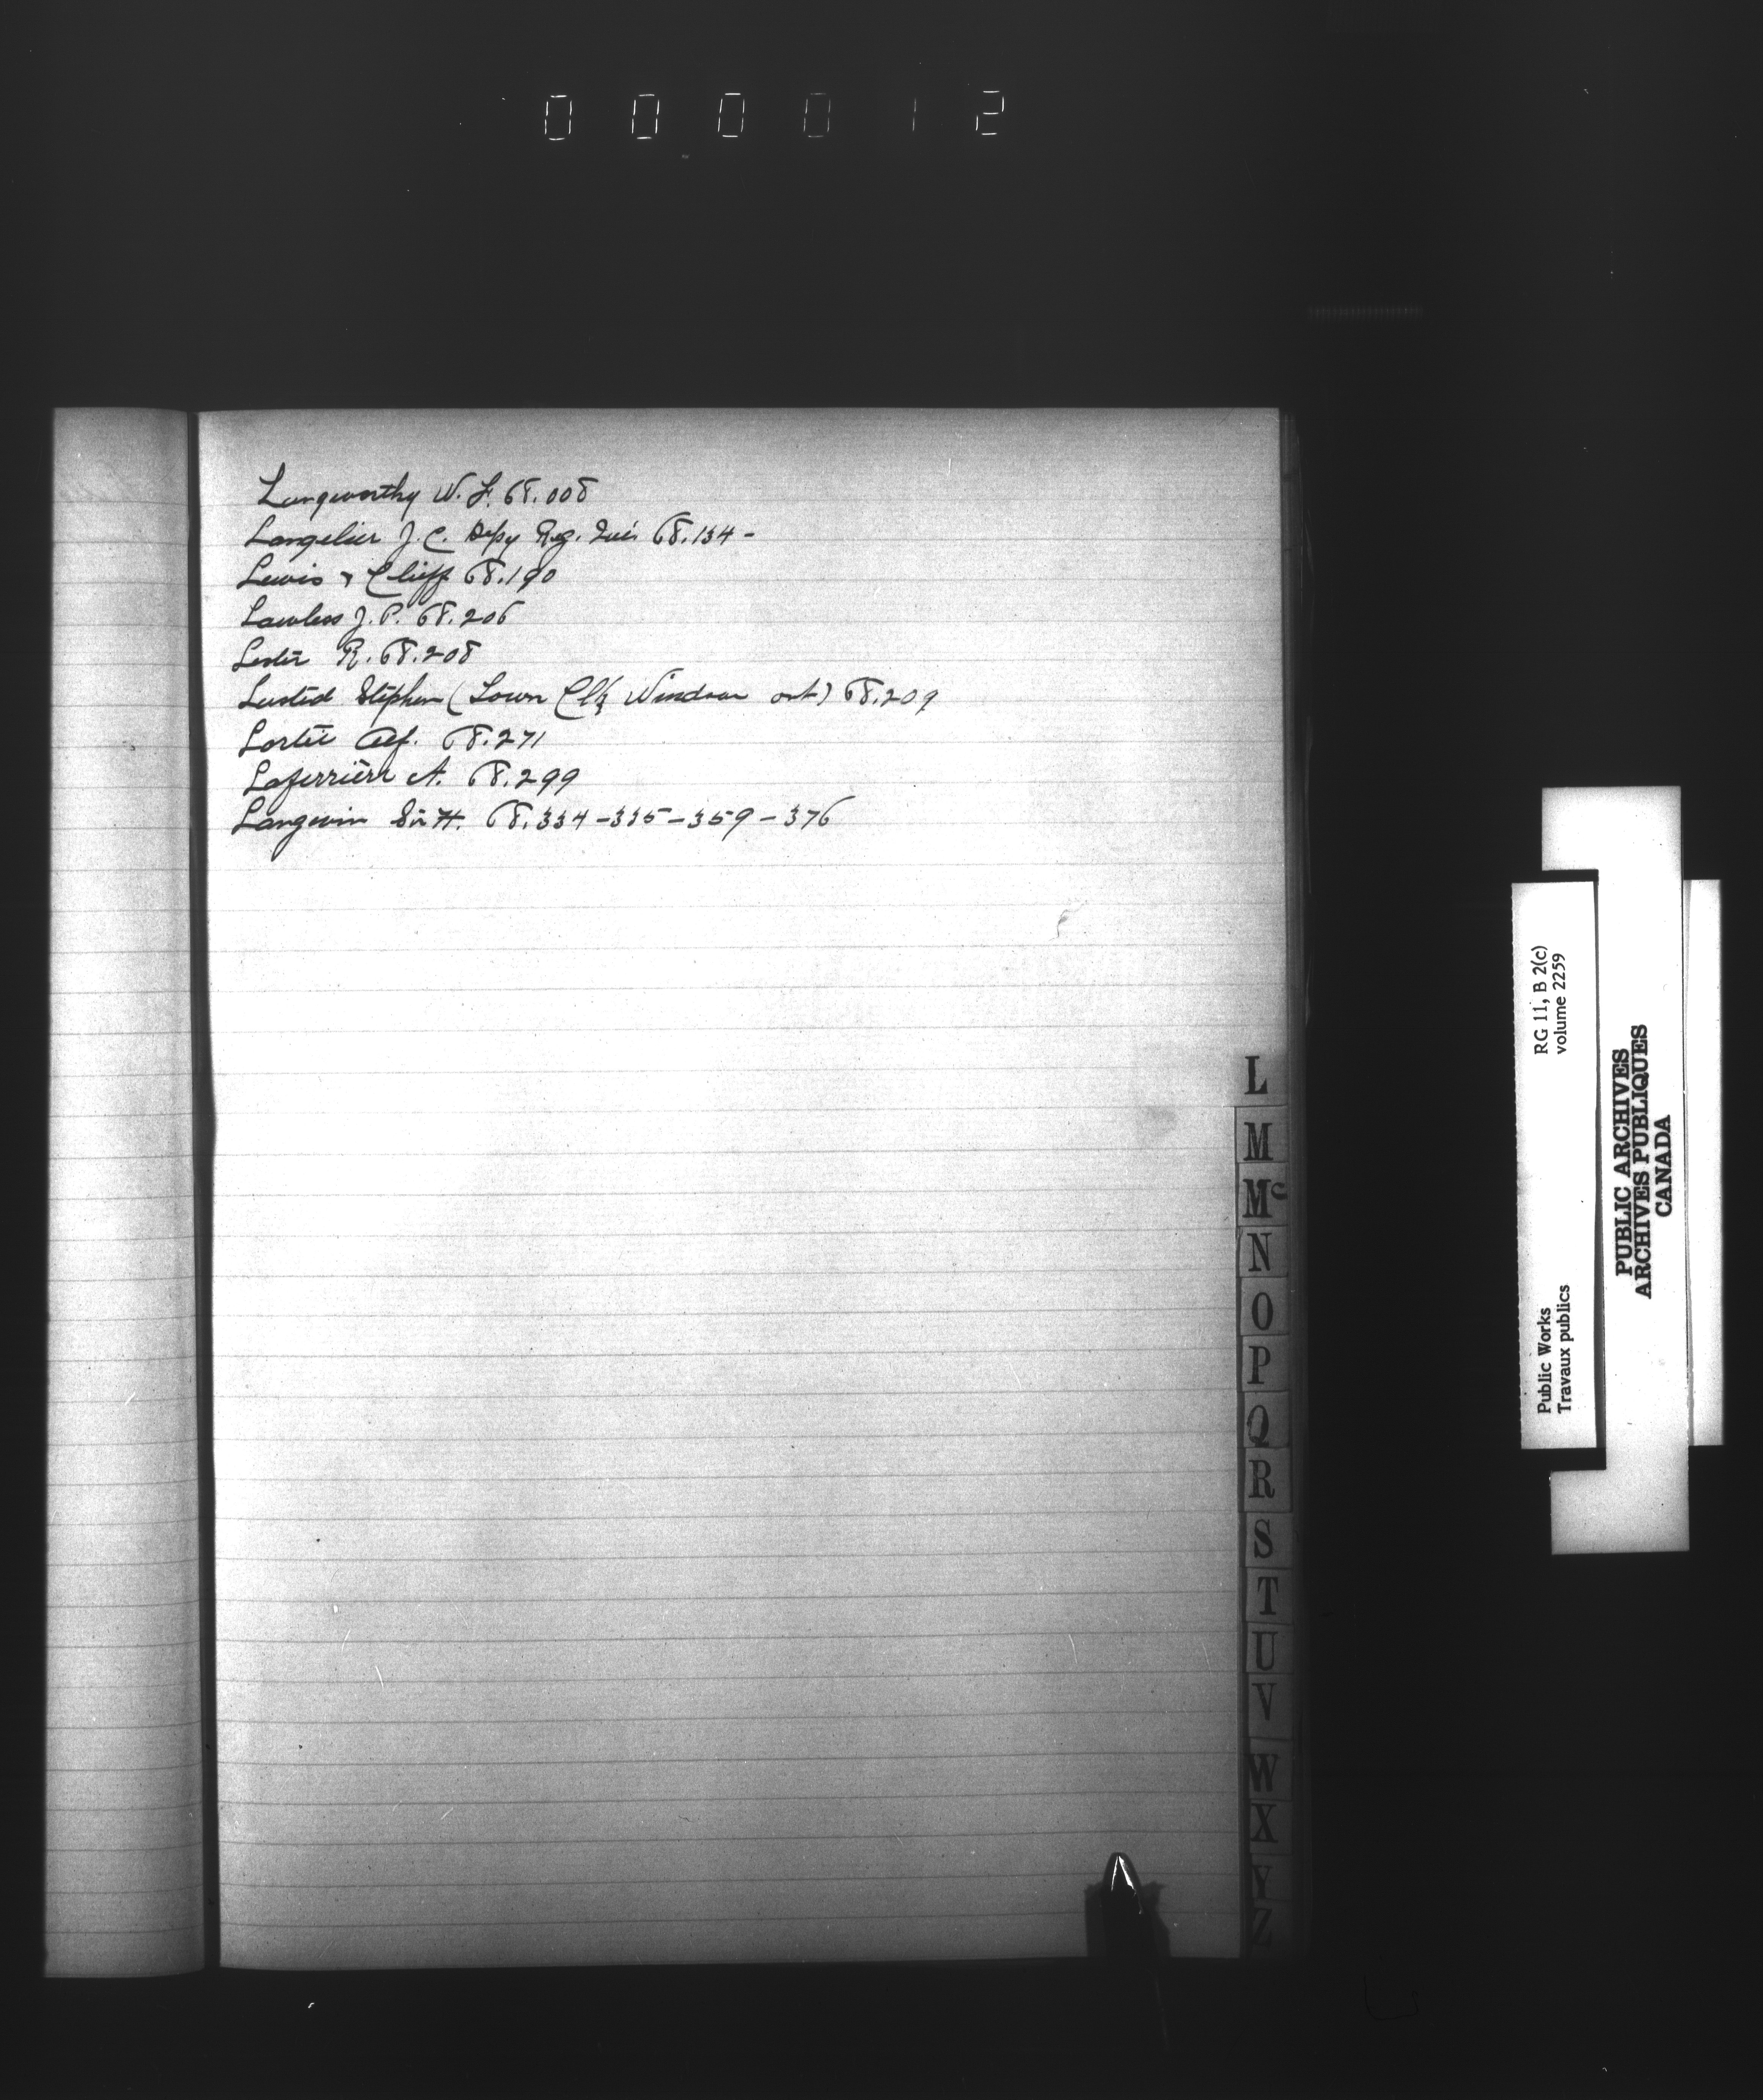 000012
Langworthy W. F. 68.008
Langelier J. C. Depy Reg. 68.134 -
Lewis & Clieff 68.190
Lawless J. P. 68.206
Lester R. 68.208
Lusted Stephen (Town Clk Windsor ont) 68.209
Lortie Alf. 68.271
Laferrière A. 68.299
Langevin Sir H. 68.334-335-359-376
L
M
Mc
N
O
P
Q
R
S
T
U
V
W
X
Y
Z
RG 11, B 2(c)
volume 2259
Public Works
Travaux publics
PUBLIC ARCHIVES
ARCHIVES PUBLIQUES
CANADA